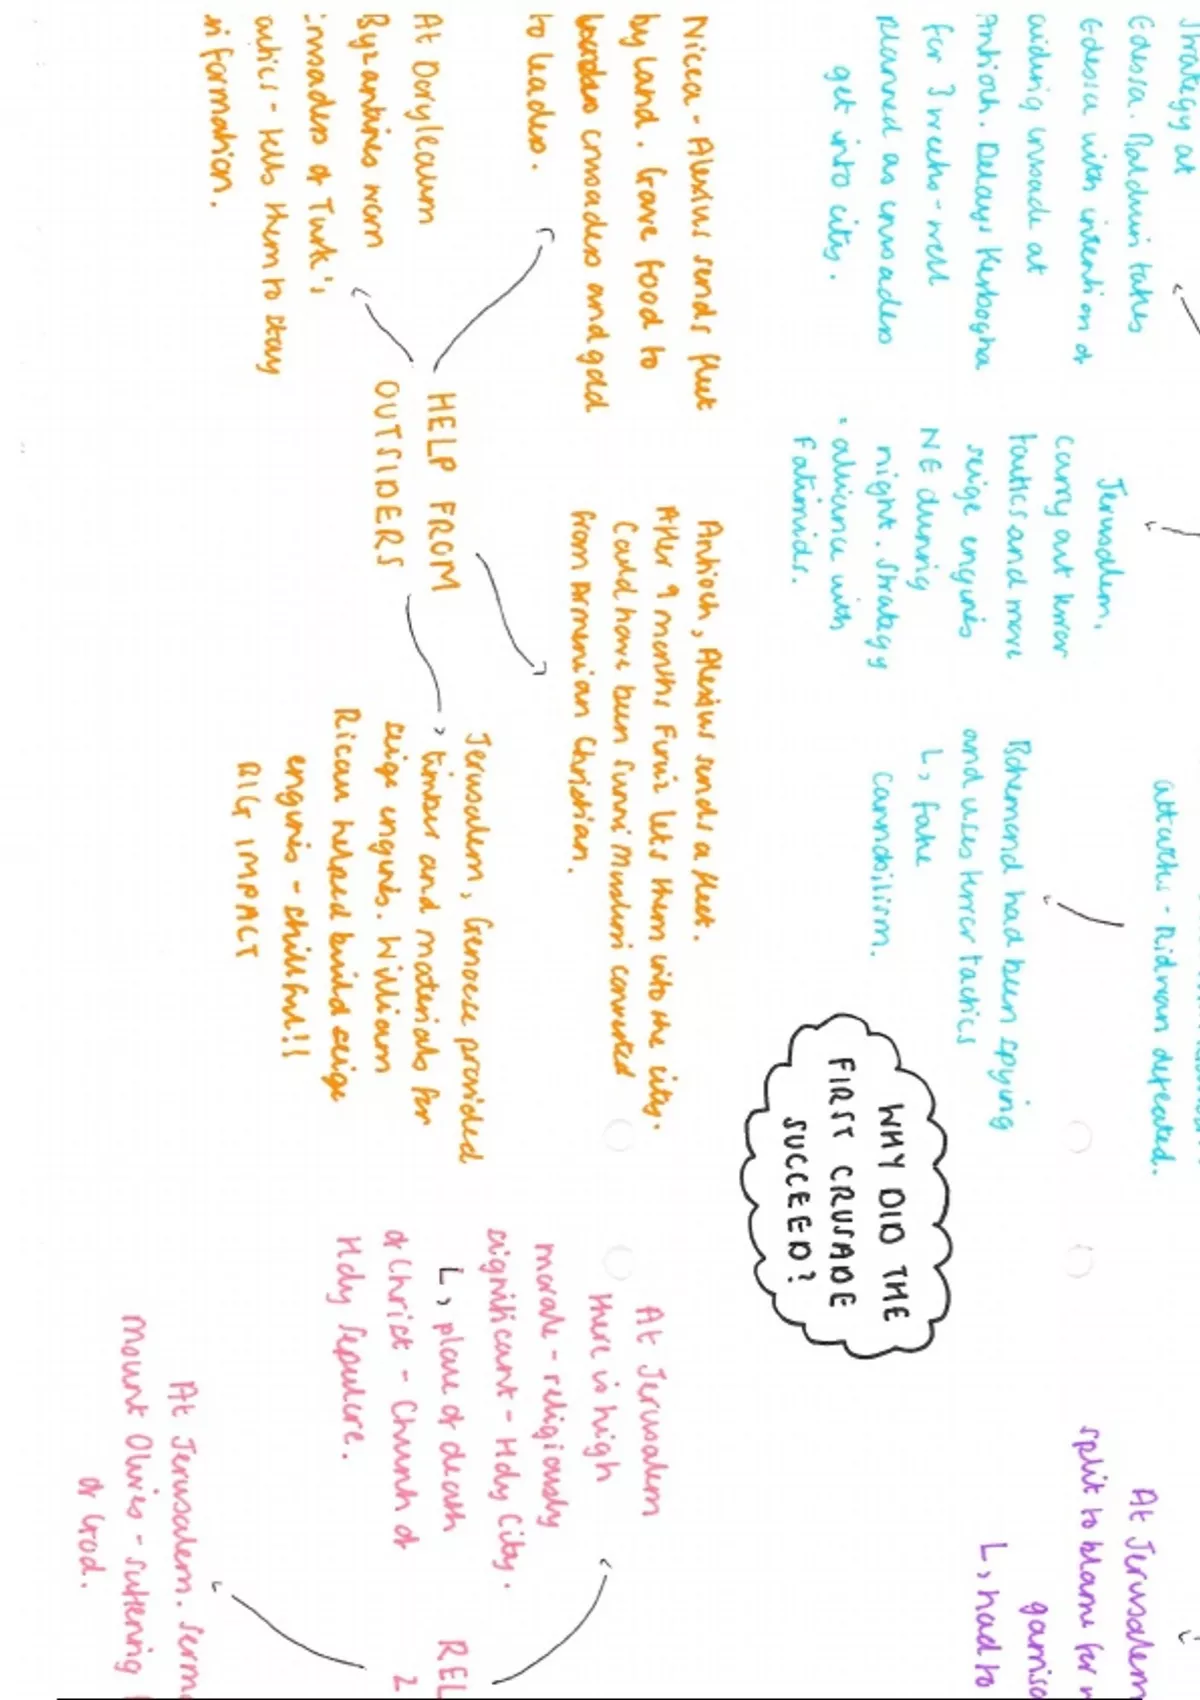 Strategy at
Edessa. Balduin takes
Edessa with intention of
aiding crusade at
Antioch. Delays Kerbogha
for 3 weeks - well
planned as crusaders
get into city.
Jerusalem,
carry out terror
tactics and move
seige engines
NE during
night. Strategy
• alliance with
Fatimids.
attacks - Ridwan defeated.
Bohemond had been spying
and uses terror tactics
L, fake
cannabilism.
WHY DID THE
FIRST CRUSADE
SUCCEED?
At Jerusalem
split to blame for
garriso
L, had to
Nicea - Alexius sends fleet
by land. Gave food to
crusaders and gold
to leaders.
At Doryleaum
Byzantines warn
crusaders of Turk's
tactics - tells them to stay
in formation.
HELP FROM
OUTSIDERS
Antioch, Alexius sends a fleet.
After 9 months Firuz lets them into the city.
Could have been Sunni Muslim converted
from Armenian Christian.
Jerusalem, Genoese provided
timber and materials for
seige engines. William
Ricau helped build seige
engines - skillful!!
BIG IMPACT
At Jerusalem
there is high
morale - religiously
significant - Holy City.
L, place of death
of Christ - Church of
Holy Sepulcre.
REL
At Jerusalem. Serm
Mount Olives - suffering
of God.